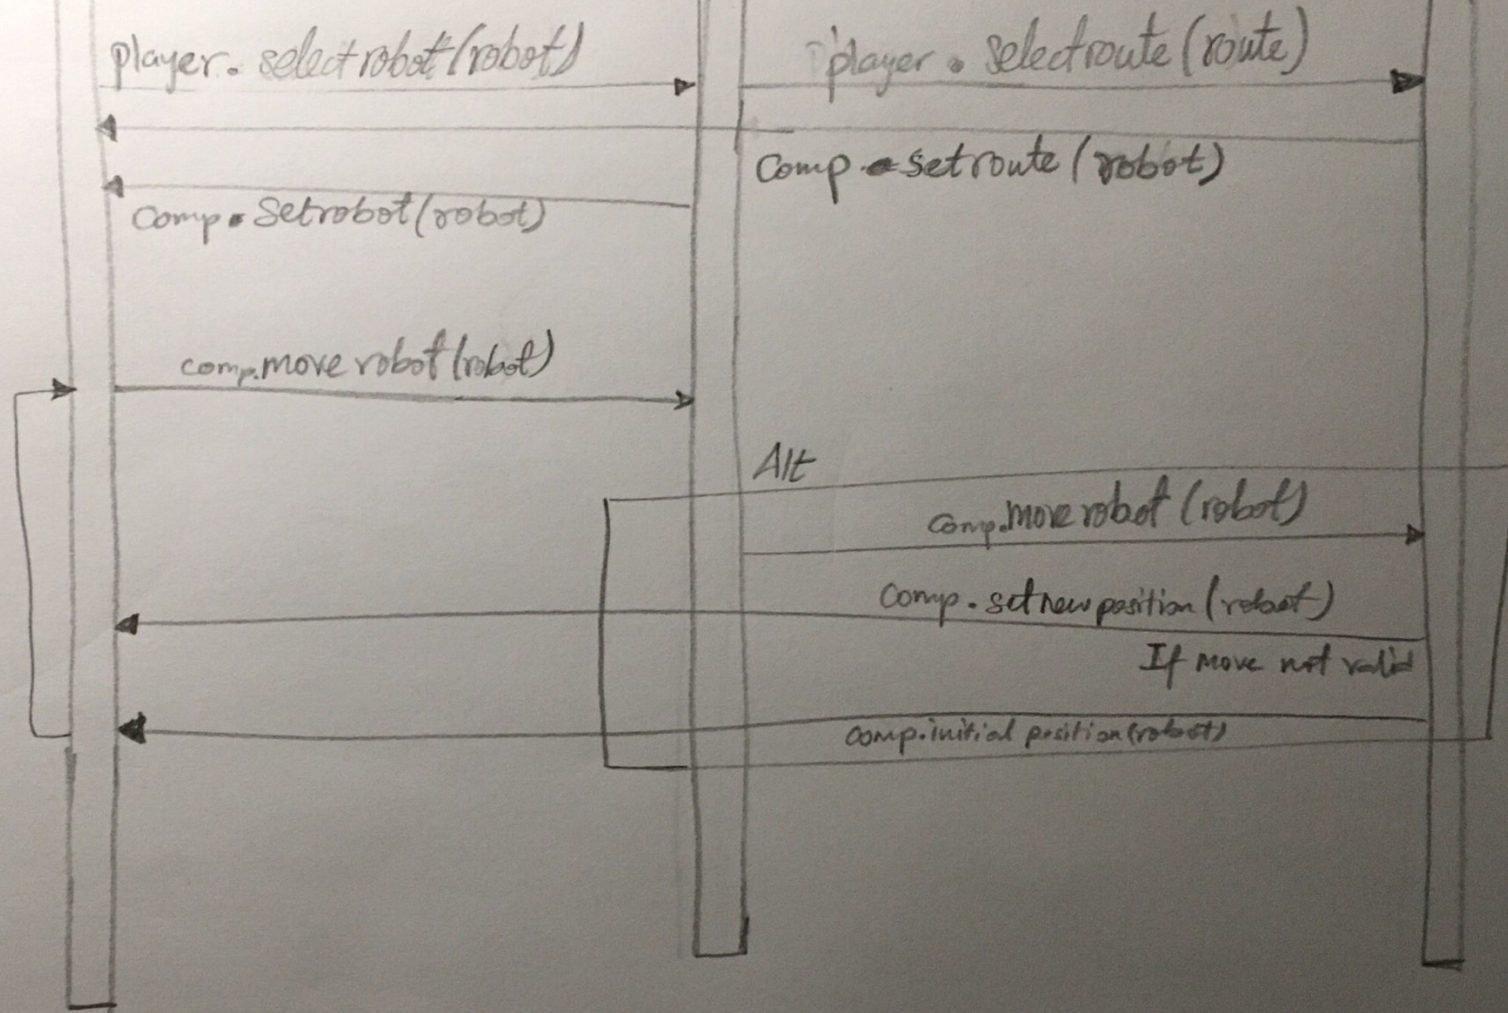 player.selectrobot(robot)
player.selectroute(route)
comp.setroute(robot)
comp.setrobot(robot)
comp.move robot(robot)
Alt
comp.move robot(robot)
comp.setnewposition(robot)
If move not valid
comp.initial position(robot)